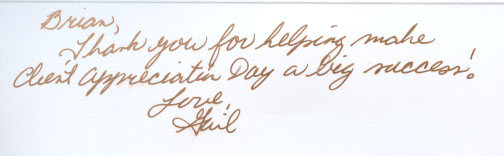 Brian,
Thank you for helping make
Client Appreciation Day a big success!
Love,
Gail